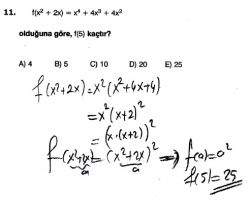 11. f(x² + 2x) = x⁴ + 4x³ + 4x²
olduğuna göre, f(5) kaçtır?
A) 4 B) 5 C) 10 D) 20 E) 25
f(x²+2x)=x²(x²+4x+4)
=x²(x+2)²
=(x.(x+2))²
f(x²+2x)=(x²+2x)² ⇒ f(a)=a²
a a
f(5)=25